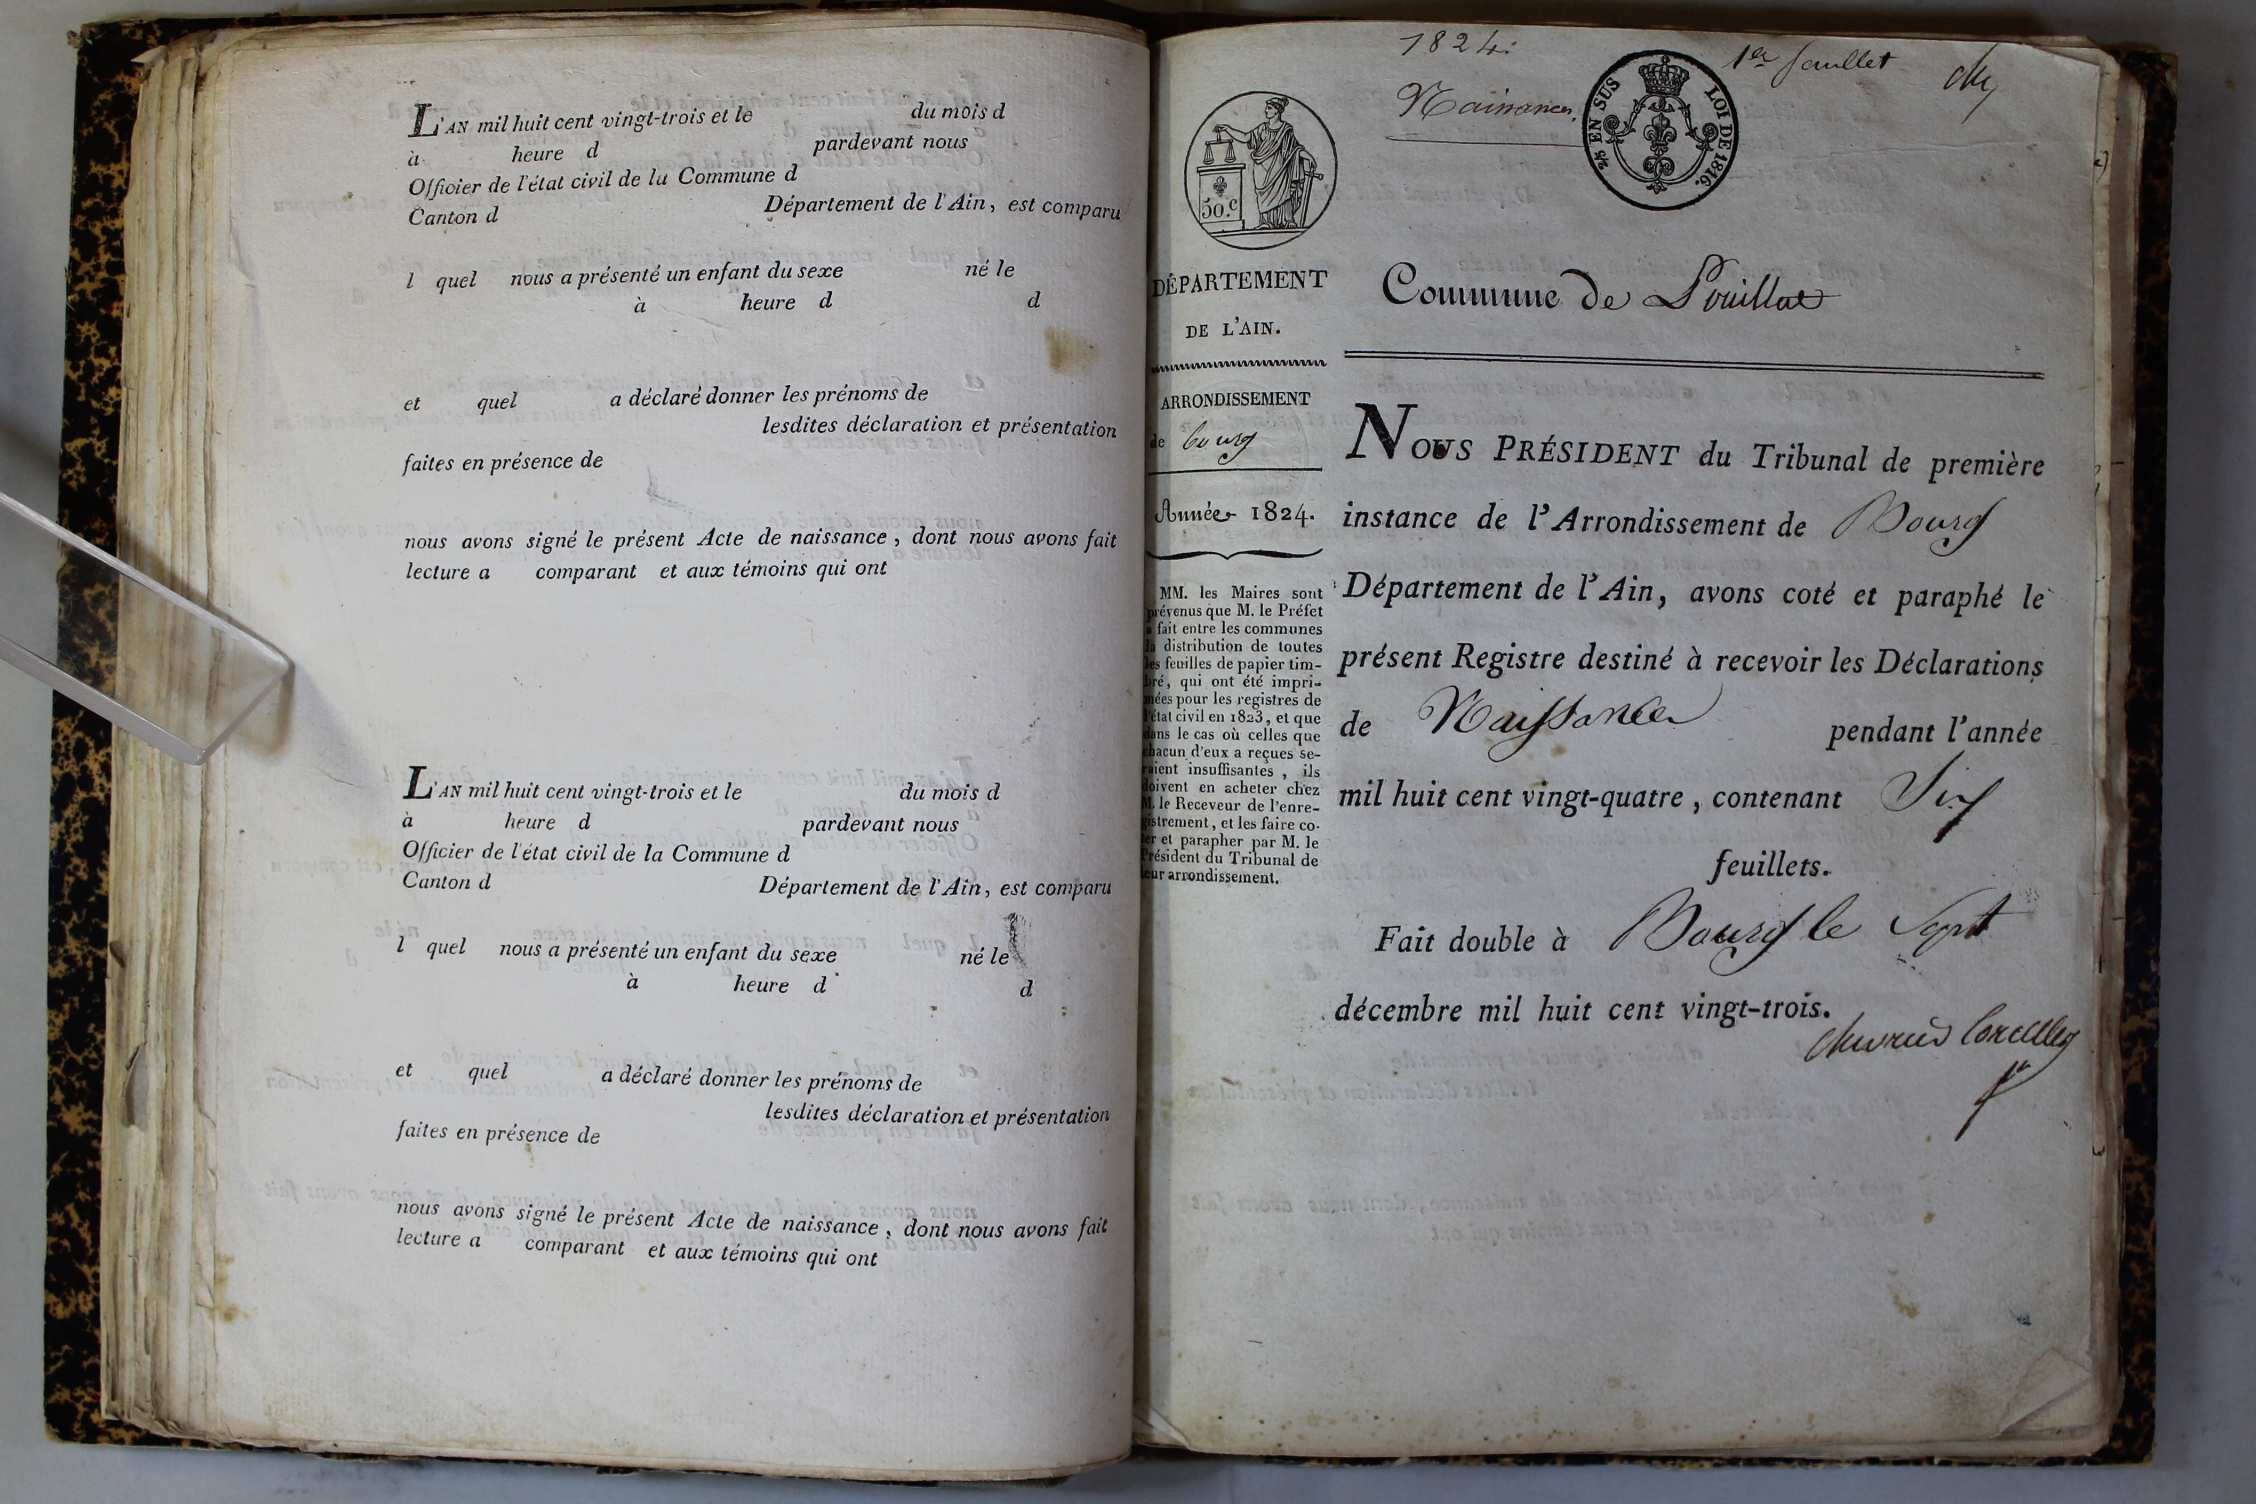 L'AN mil huit cent vingt-trois et le du mois d
à heure d pardevant nous
Officier de l'état civil de la Commune d
Canton d Département de l'Ain, est comparu
l quel nous a présenté un enfant du sexe né le
à heure d d
et quel a déclaré donner les prénoms de
lesdites déclaration et présentation
faites en présence de
nous avons signé le présent Acte de naissance, dont nous avons fait
lecture a comparant et aux témoins qui ont
L'AN mil huit cent vingt-trois et le du mois d
à heure d pardevant nous
Officier de l'état civil de la Commune d
Canton d Département de l'Ain, est comparu
l quel nous a présenté un enfant du sexe né le
à heure d d
et quel a déclaré donner les prénoms de
lesdites déclaration et présentation
faites en présence de
nous avons signé le présent Acte de naissance, dont nous avons fait
lecture a comparant et aux témoins qui ont
1824.
Naissances.
1er feuillet
EN SUS LOI DE 1816.
50.c
DÉPARTEMENT
DE L'AIN.
ARRONDISSEMENT
de bourg
Année 1824.
MM. les Maires sont
prévenus que M. le Préfet
a fait entre les communes
la distribution de toutes
les feuilles de papier tim-
bré, qui ont été impri-
mées pour les registres de
l'état civil en 1823, et que
dans le cas où celles que
chacun d'eux a reçues se-
raient insuffisantes, ils
doivent en acheter chez
M. le Receveur de l'enre-
gistrement, et les faire co-
ter et parapher par M. le
Président du Tribunal de
leur arrondissement.
Commune de Pouillat
NOUS PRÉSIDENT du Tribunal de première
instance de l'Arrondissement de Bourg
Département de l'Ain, avons coté et paraphé le
présent Registre destiné à recevoir les Déclarations
de Naissances pendant l'année
mil huit cent vingt-quatre, contenant Six
feuillets.
Fait double à Bourg le Sept
décembre mil huit cent vingt-trois.